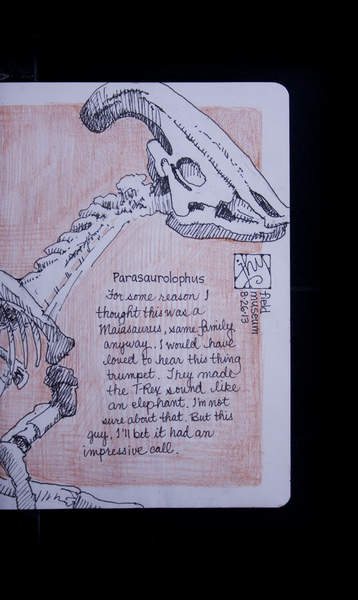 Parasaurolophus
For some reason I
thought this was a
Maiasaurus, same family,
anyway.. I would have
loved to hear this thing
trumpet. They made
the T-Rex sound like
an elephant. I'm not
sure about that. But this
guy, I'll bet it had an
impressive call.
field
museum
8·26·13